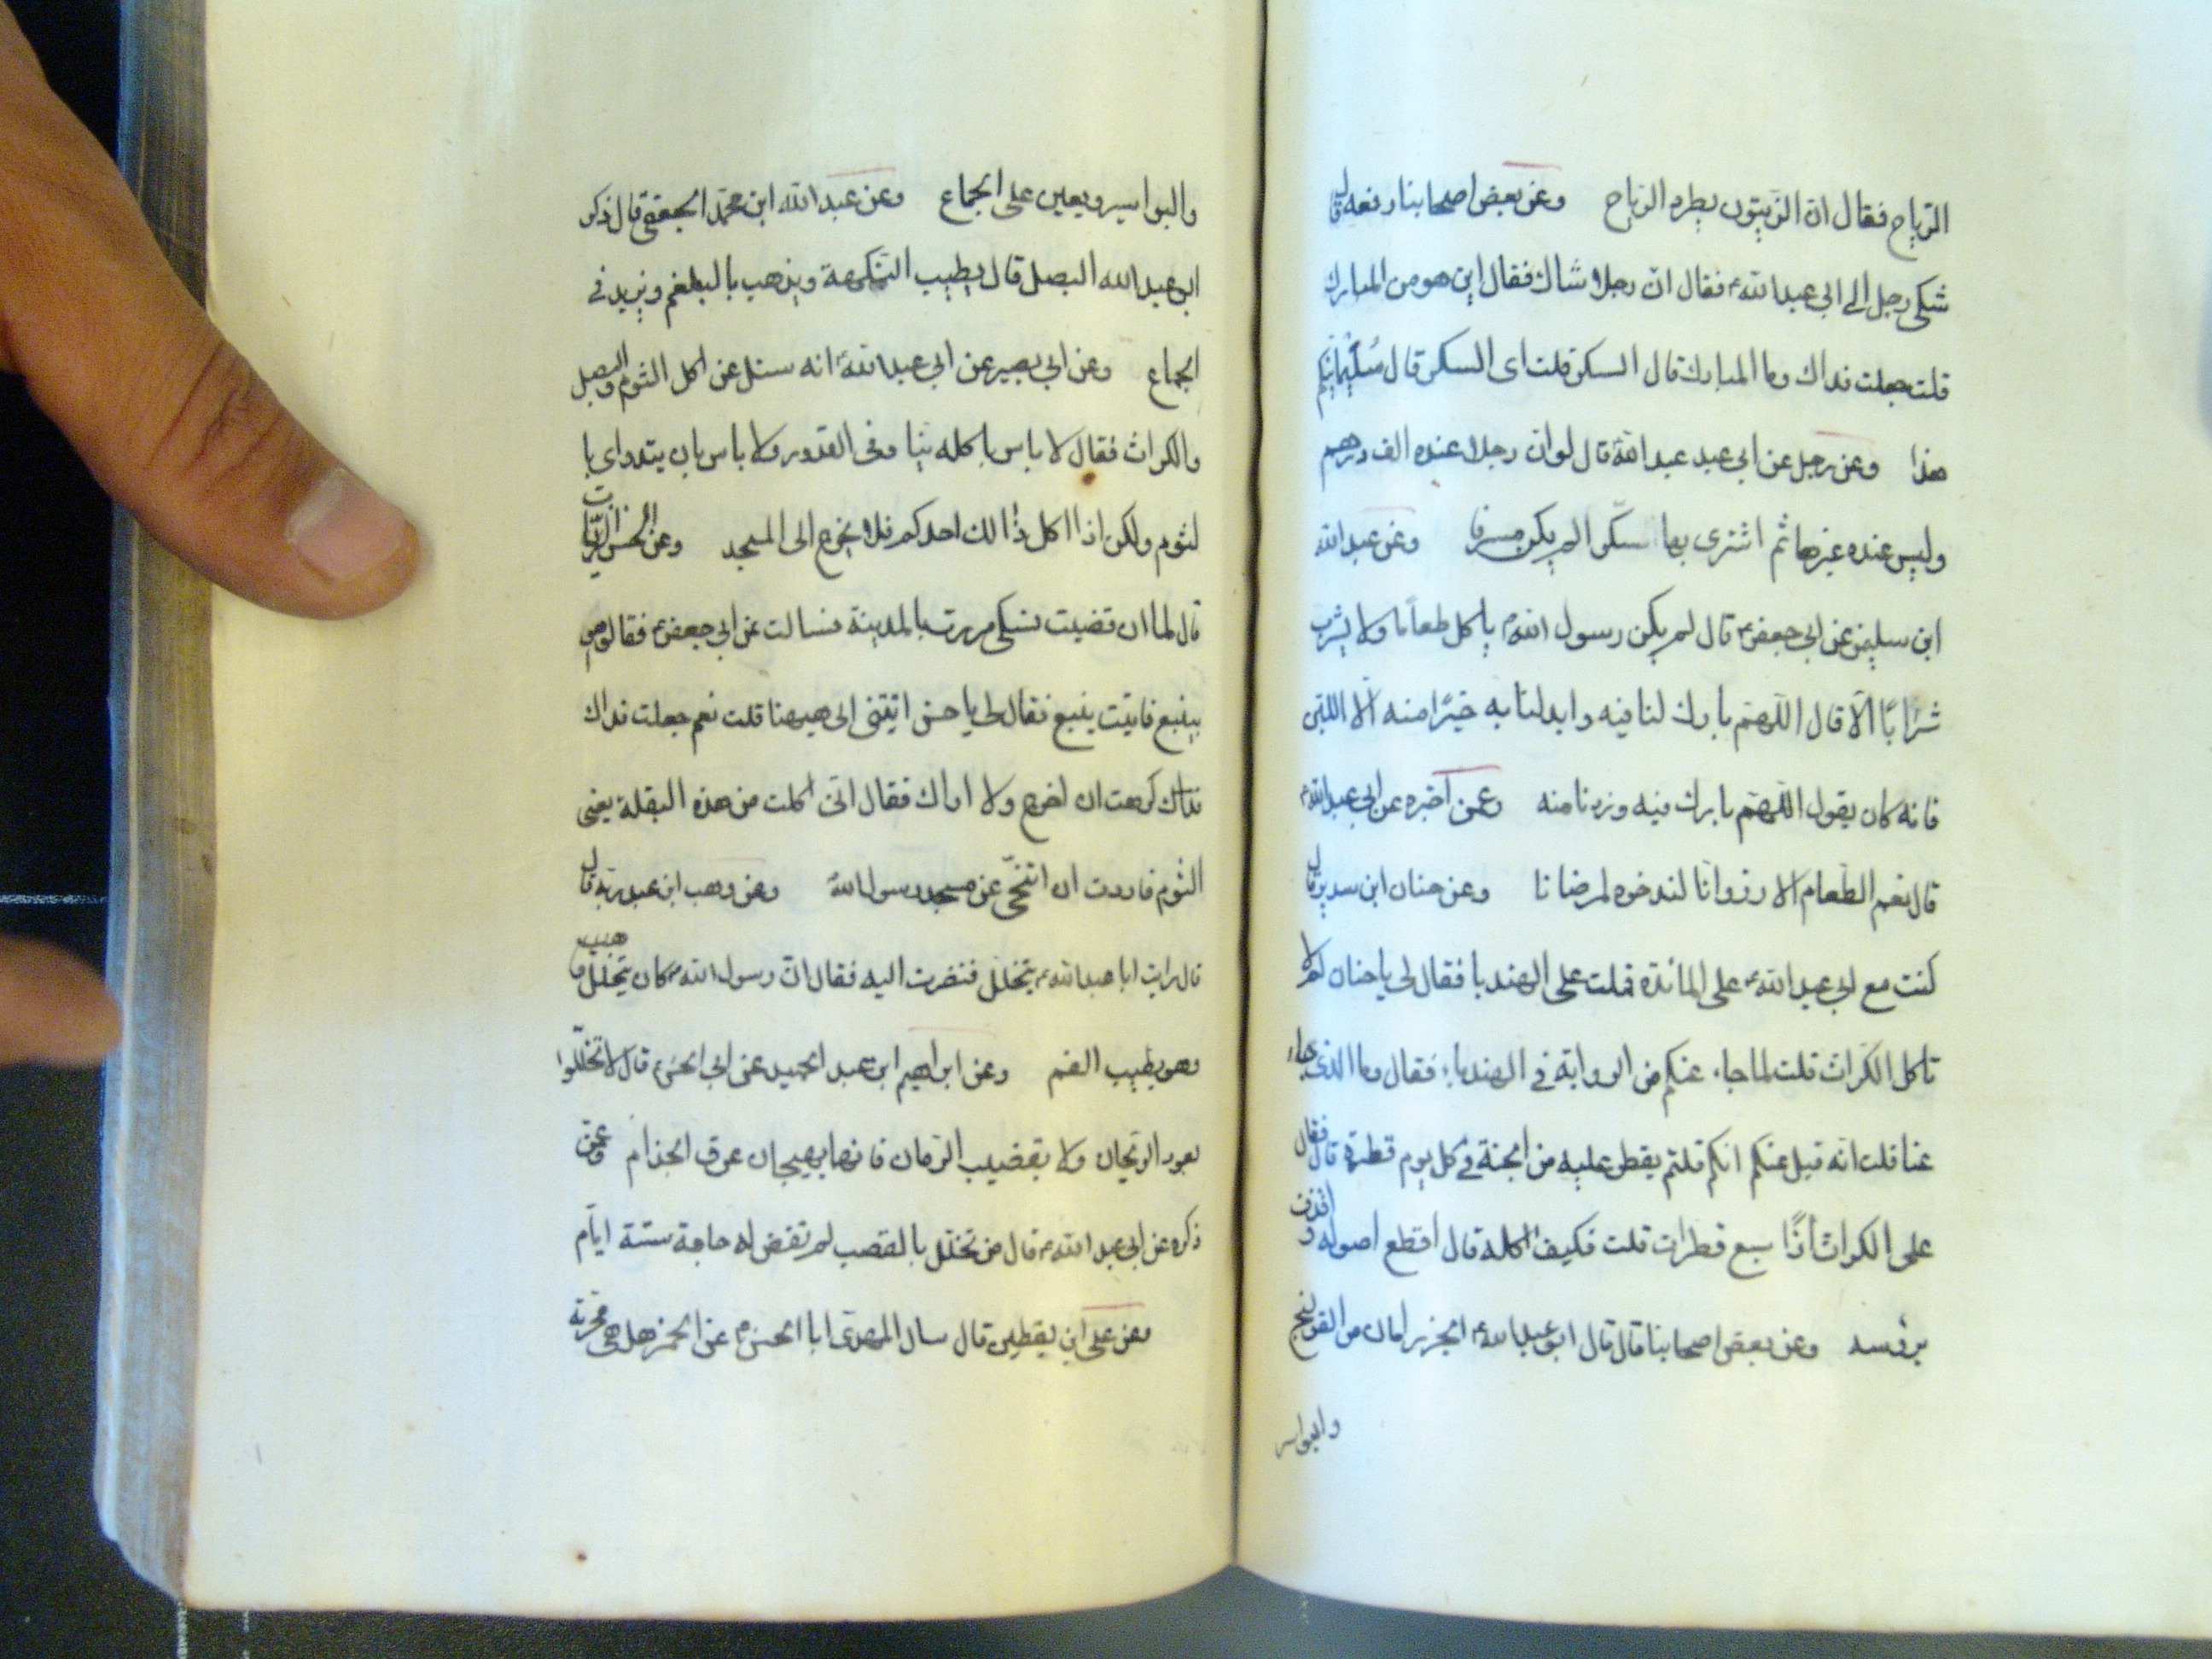 الرياح فقال ان الزيتون يطرد الرياح وعن بعض اصحابنا رفعه قال
شكى رجل الى ابي عبدالله ع فقال ان رجلا شاك فقال اين هو من المبارك
قلت جعلت فداك وما المبارك قال السكر قلت اى السكر قال سليمانيكم
هذا وعن رجل عن ابي عبد عبدالله قال لو ان رجلا عنده الف درهم
وليس عنده غيرها ثم اشترى بها سكرا لم يكن مسرفا وعن عبدالله
ابن سليمن عن ابي جعفر ع قال لم يكن رسول الله ص ياكل طعاما ولا يشرب
شرابًا الّا قال اللّهمّ بارك لنا فيه وابدلنا به خيرًا منه الّا اللبن
فانه كان يقول اللّهمّ بارك فيه وزدنا منه وعمن اخبره عن ابي عبدالله ع
قال نعم الطّعام الارز وانّا لندخره لمرضانا وعن حنان ابن سدير قال
كنت مع ابي عبدالله ع على المائدة فملت على الهندبا فقال لى يا حنان لم لا
تاكل الكرّاث قلت لما جاء عنكم من الرواية في الهندباء فقال وما الذى جاء
عنا قلت انّه قيل عنكم انكم قلتم يقطر عليه من الجنة في كل يوم قطرة قال فقال
على الكراث اذًا سبع قطرات قلت فكيف اكله قال اقطع اصوله واقذف
برؤسه وعن بعض اصحابنا قال قال ابو عبدالله ع الجزر امان من القولنج
والبواسير
والبواسير ويعين على الجماع وعن عبدالله ابن محمّد الجعفي قال ذكر
ابو عبدالله البصل قال يطيب النكهة ويذهب بالبلغم ويزيد في
الجماع وعن ابي بصير عن ابي عبدالله ع انه سئل عن اكل الثوم والبصل
والكراث فقال لا باس باكله نيا وفى القدور ولا باس بان يتداوى با
لثوم ولكن اذا اكل ذالك احدكم فلا يخرج الى المسجد وعن الحسن الزيات
قال لما ان قضيت نسكى مررت بالمدينة فسالت عن ابي جعفر ع فقالوا هو
بينبع فاتيت ينبع فقال لى يا حسن اتيتنى الى هيهنا قلت نعم جعلت فداك
فداك كرهت ان اخرج ولا اراك فقال انى اكلت من هذه البقلة يعنى
الثوم فاردت ان اتنحّى عن مسجد رسول الله ص وعن وهب ابن عبد ربه قال
قال رايت ابا عبدالله ع يتخلل فنضرت اليه فقال ان رسول الله ص كان يتخلل
وهو يطيب الفم وعن ابراهيم ابن عبد الحميد عن ابي الحسن ع قال لا تخللوا
بعود الريحان ولا بقضيب الرمان فانهما يهيجان عرق الجذام وعمن
ذكره عن ابي عبدالله ع قال من تخلل بالقصب لم تقض له حاجة ستة ايّام
وعن على ابن يقطين قال سال المهدى ابا الحسن ع عن الخمر هل هى محرمة